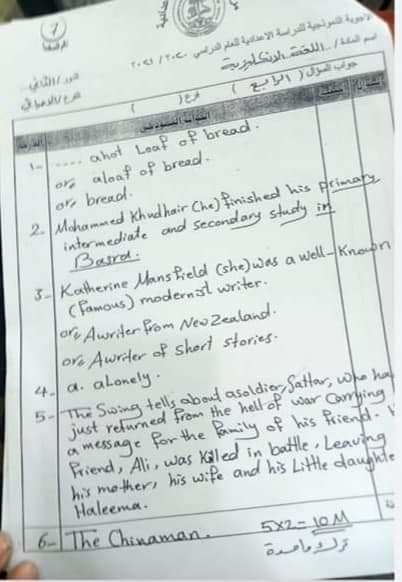 الاجوبة النموذجية للدراسة الاعدادية للعام الدراسي ٢٠٢٠ / ٢٠٢١
اسم المادة / اللغة الانكليزية
جواب السؤال ( الرابع ) فرع ( )
1- ..... ahot Loaf of bread.
or: aloaf of bread.
or: bread.
2- Mohammed Khudhair (he) finished his primary
intermediate and secondary study in
Basra.
3- Katherine Mansfield (she) was a well-known
(famous) modernist writer.
or: Awriter from New Zealand.
or: Awriter of short stories.
4- a. aLonely.
5- The Swing tells about asoldier, Sattar, who ha
just returned from the hell of war carrying
a message for the family of his friend. H
friend, Ali, was killed in battle, Leaving
his mother, his wife and his Little daughte
Haleema.
6- The Chinaman.
5x2=10M
ترك واحدة